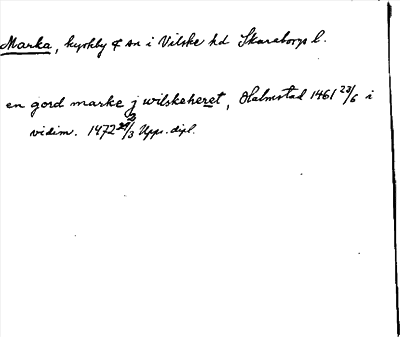 Marka, kyrkby & sn i Vilske hd Skaraborgs l.
en gord marke j wilskeheret, Halmstad 1461 23/6 i
vidim. 1472 29/3 Upps. dipl.